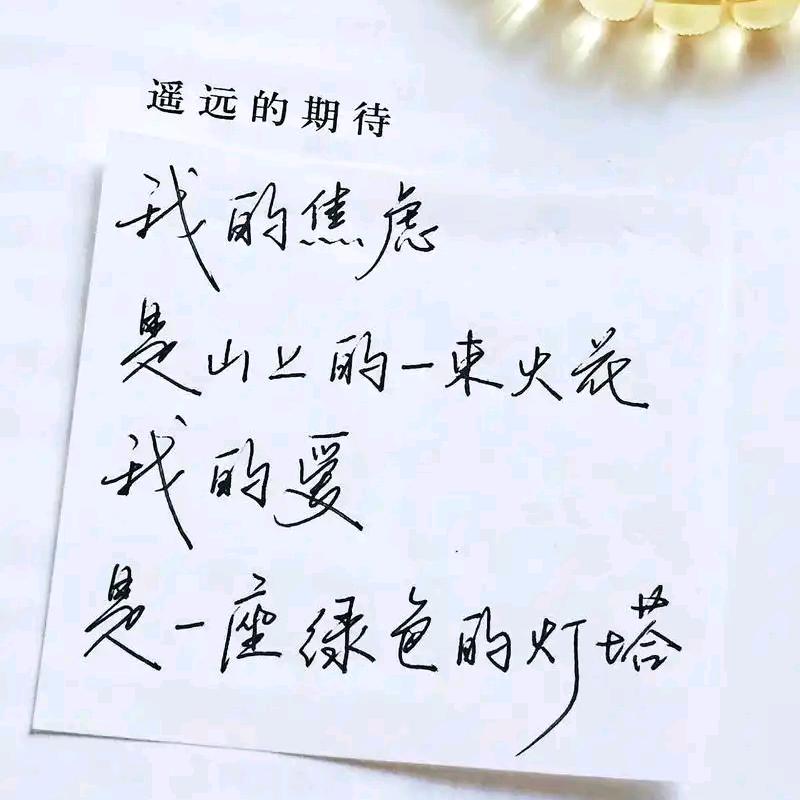 遥远的期待
我的焦虑
是山上的一束火花
我的爱
是一座绿色的灯塔